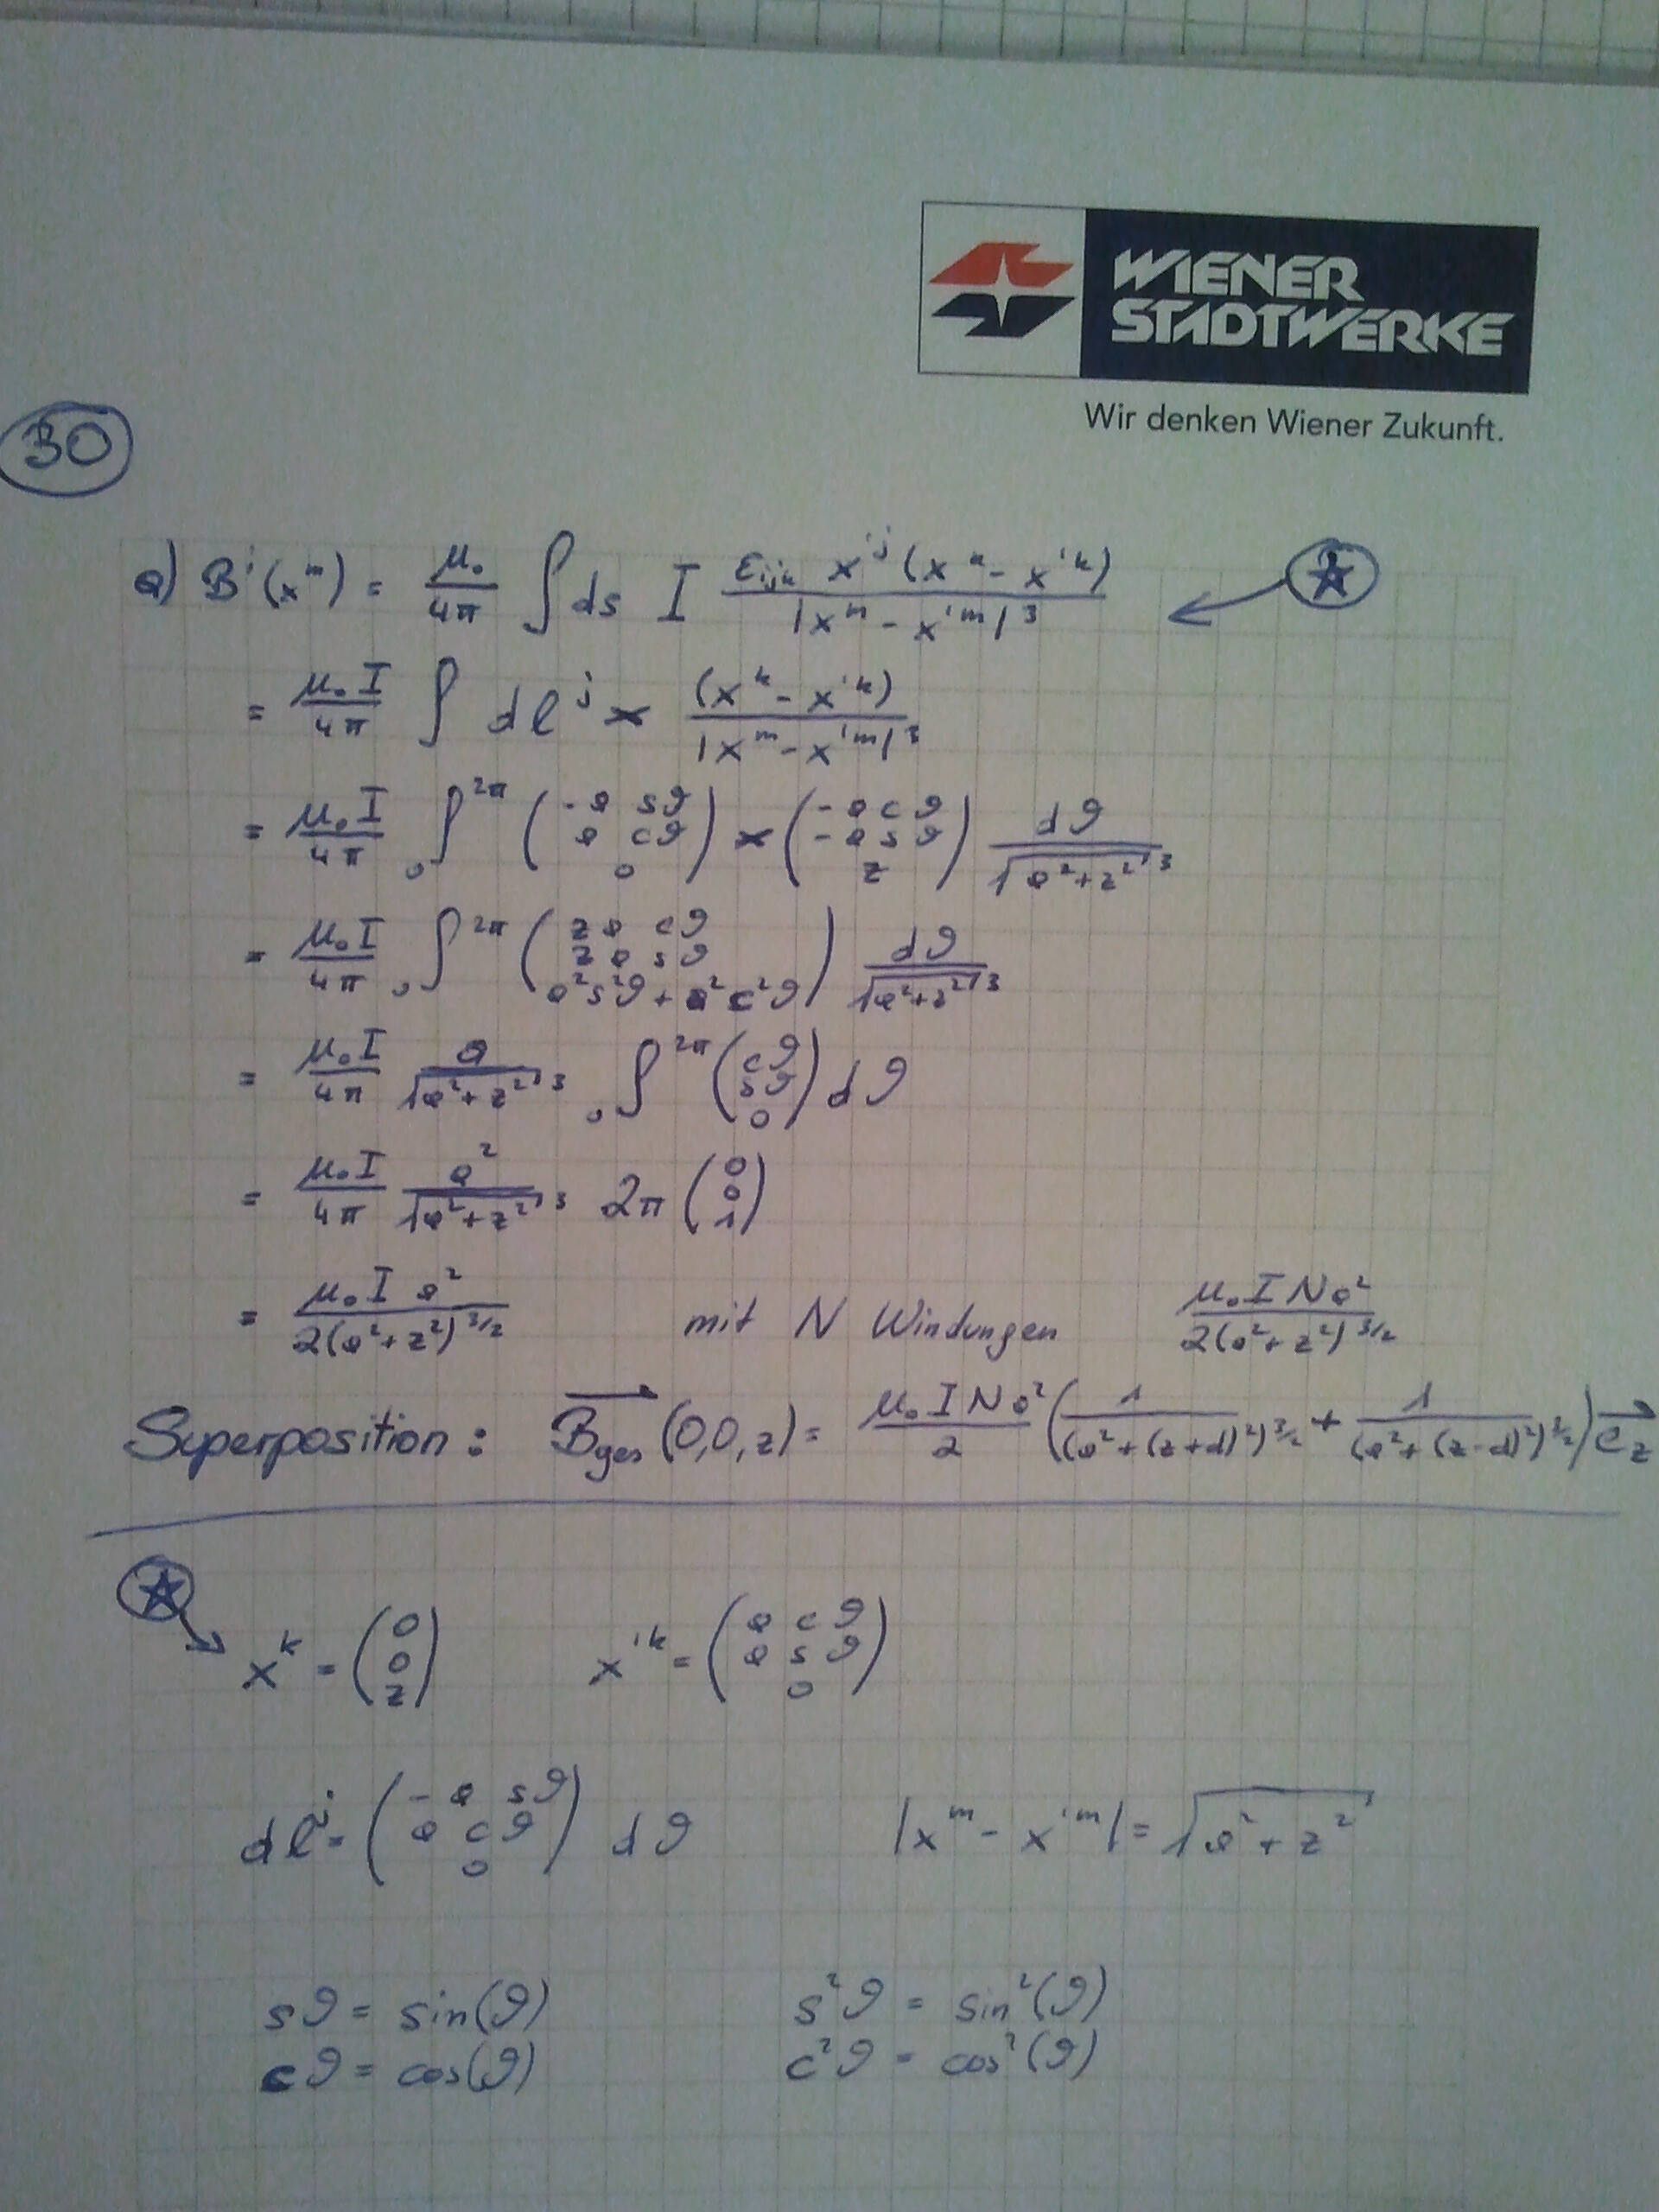 WIENER
STADTWERKE
Wir denken Wiener Zukunft.
30
a) Bⁱ(xᵐ) = μ₀/4π ∫ ds I εᵢⱼₖ x'ʲ (xᵏ - x'ᵏ) / |xᵐ - x'ᵐ|³
= μ₀I/4π ∫ dℓʲ × (xᵏ - x'ᵏ) / |xᵐ - x'ᵐ|³
= μ₀I/4π ₀∫²π (-a sϑ, a cϑ, 0) × (-a cϑ, -a sϑ, z) dϑ/√(a²+z²)³
= μ₀I/4π ₀∫²π (z a cϑ, z a sϑ, a²s²ϑ + a²c²ϑ) dϑ/√(a²+z²)³
= μ₀I/4π a/√(a²+z²)³ ₀∫²π (cϑ, sϑ, 0) dϑ
= μ₀I/4π a²/√(a²+z²)³ 2π (0, 0, 1)
= μ₀I a²/2(a²+z²)^3/2 mit N Windungen μ₀I N a²/2(a²+z²)^3/2
Superposition: B⃗ges (0,0,z) = μ₀I N a²/2 (1/(a²+(z+d)²)^3/2 + 1/(a²+(z-d)²)^3/2) e⃗z
xᵏ = (0, 0, z) x'ᵏ = (a cϑ, a sϑ, 0)
dℓʲ = (-a sϑ, a cϑ, 0) dϑ |xᵐ - x'ᵐ| = √(a²+z²)
sϑ = sin(ϑ) s²ϑ = sin²(ϑ)
cϑ = cos(ϑ) c²ϑ = cos²(ϑ)